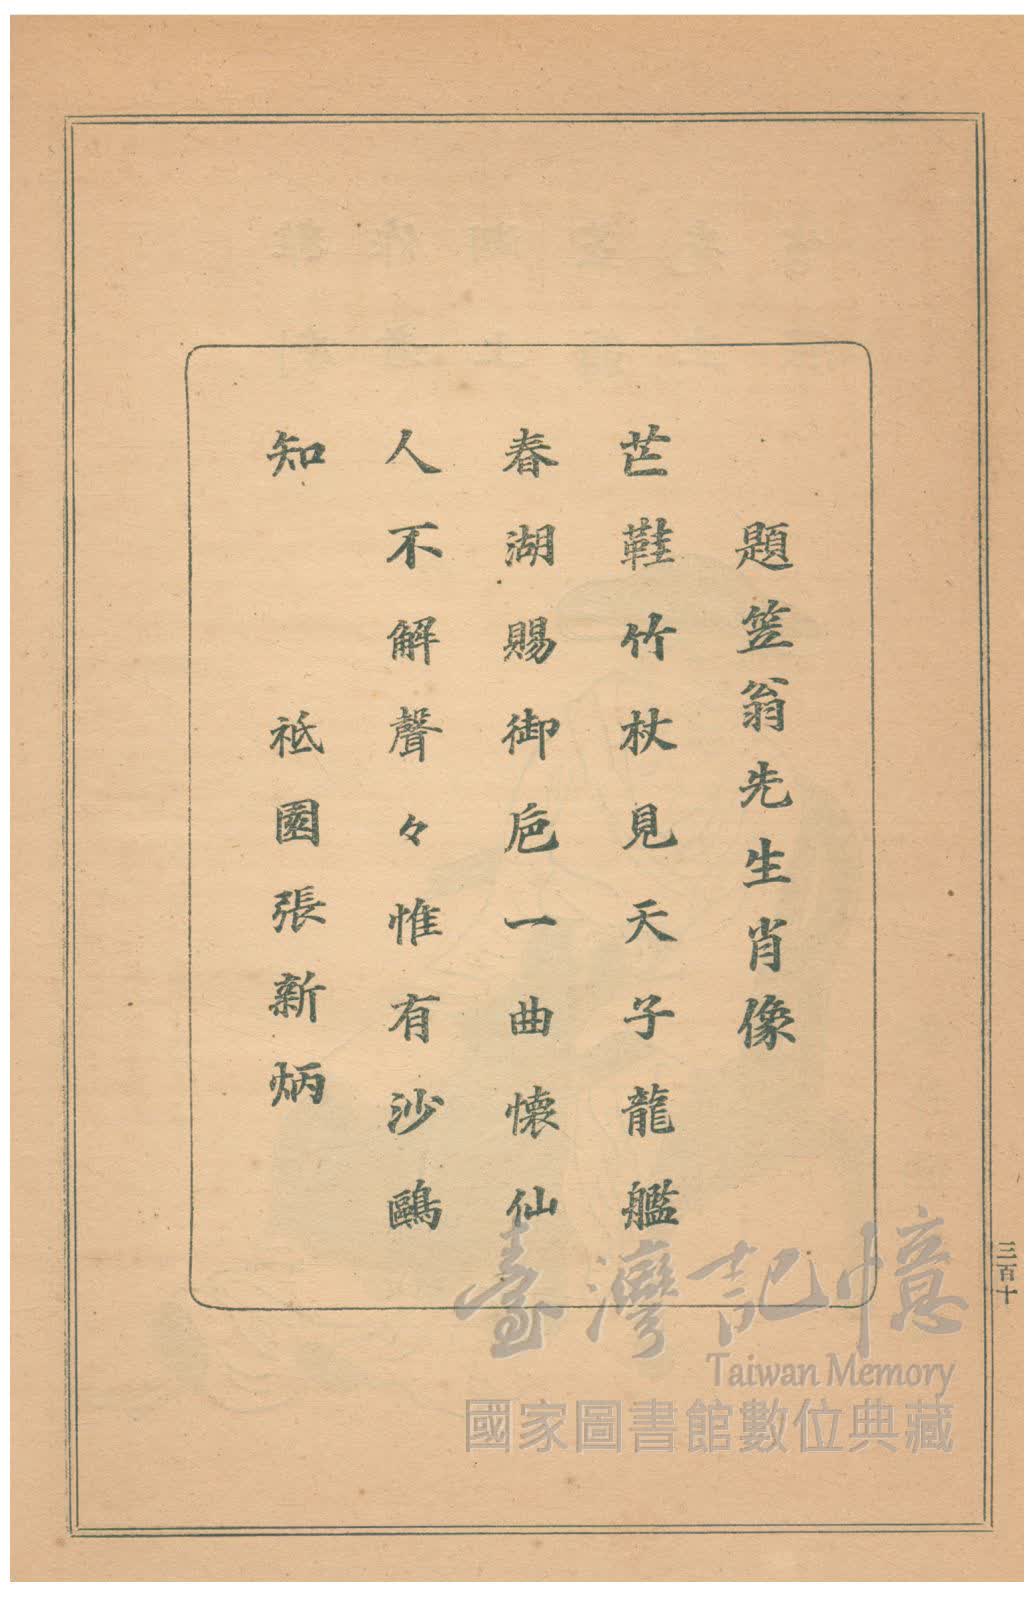 題笠翁先生肖像
芒鞋竹杖見天子龍艦
春湖賜御巵一曲懐仙
人不解聲々惟有沙鷗
知
祗園張新炳
三百十
臺灣記憶
Taiwan Memory
國家圖書館數位典藏